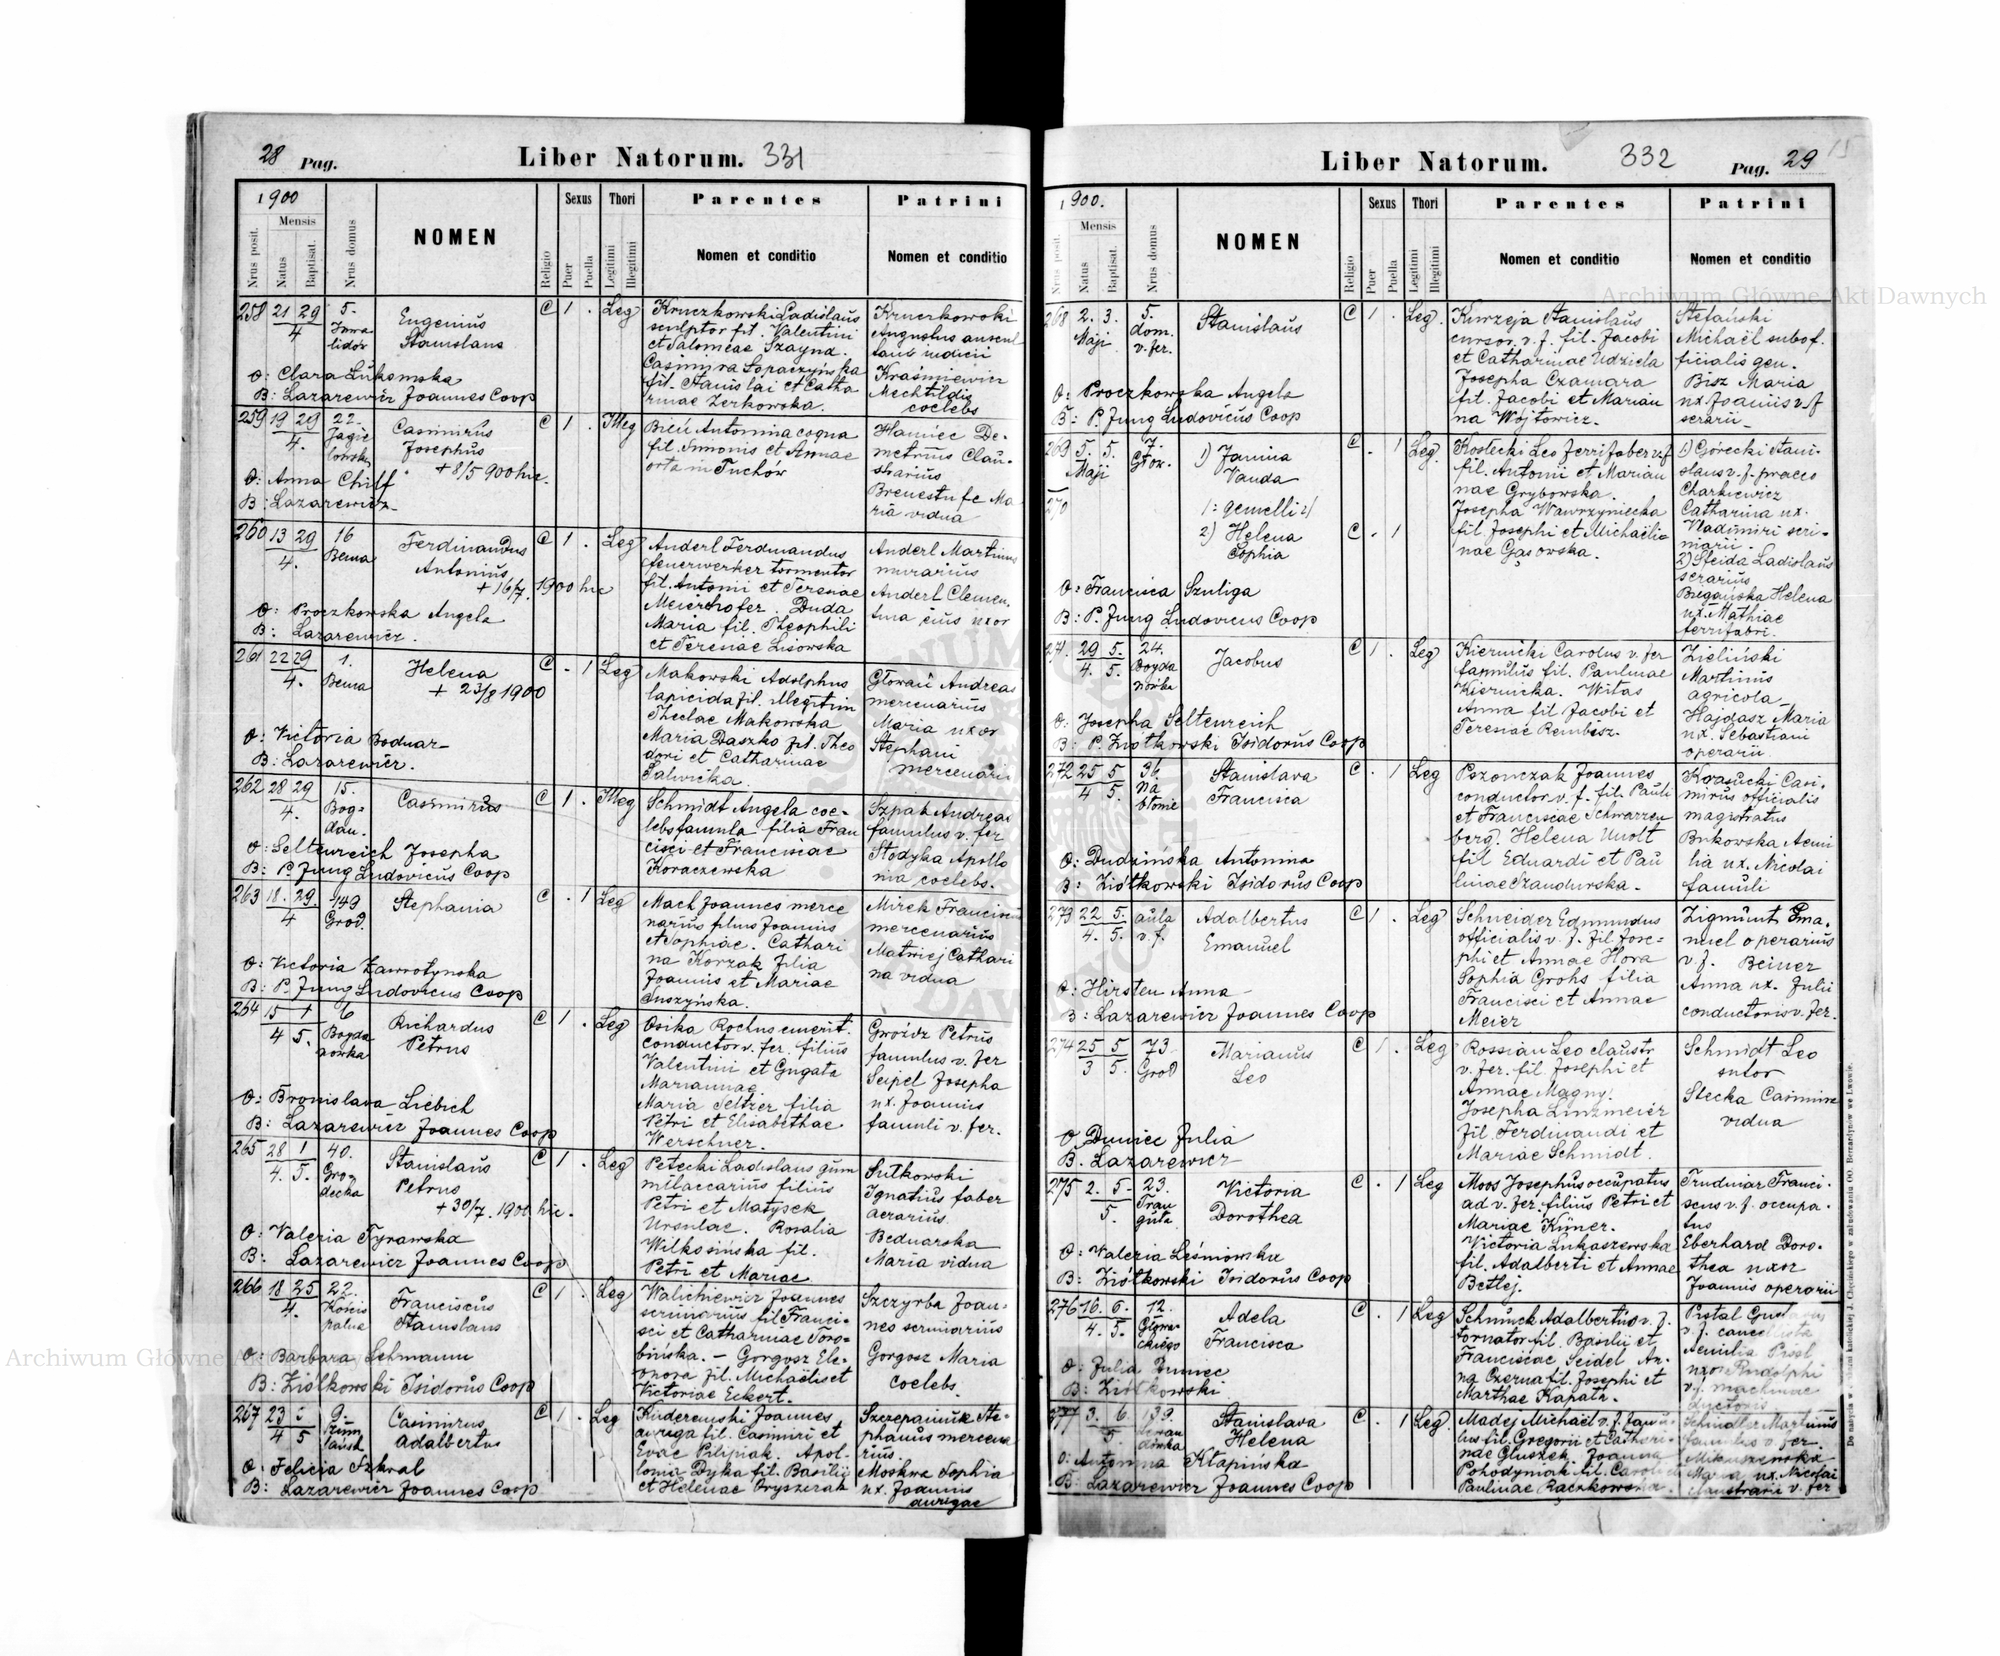 28 Pag.
Liber Natorum. 331
1900
Mensis
Nrus posit.
Natus
Baptisat.
Nrus domus
NOMEN
Religio
Sexus
Puer
Puella
Thori
Legitimi
Illegitimi
Parentes
Nomen et conditio
Patrini
Nomen et conditio
258 21 29
4
5.
Inwa
lidów
Eugenius
Stanislaus
C 1 . Leg
Kruczkowski Ladislaus
sculptor fil. Valentini
et Salomeae Szaynd.
Casimira Łopaczyńska
fil. Stanislai et Catha
rinae Zerkowska.
Kruczkowski
Augustus auscul
tans
Kraśniewicz
Mechtildis
coelebs
O: Clara Łukomska
B: Lazarewicz Joannes Coop
259 19 29
4.
22.
Jagie
lońska
Casimirus
Josephus
+ 8/5 900 hic.
C 1 . Illeg
Antonina cogna
fil. Simonis et Annae
orta in Tuchów
Haniec De-
metrius Clau-
strarius
Ma
ria vidua
O: Anna Chiff
B: Lazarewicz
260 13 29
4.
16
Bema
Ferdinandus
Antonius
+ 16/7. 1900 hic
C 1 . Leg
Anderl Ferdinandus
feuerwerker tormentor
fil. Antonii et Teresiae
Meierhofer. Duda
Maria fil. Theophili
et Teresiae Lisowska
Anderl Martinus
murarius
Anderl Clemen.
tina eius uxor
O: Proczkowska Angela
B: Lazarewicz.
261 22 29
4.
1.
Bema
Helena
+ 23/8 1900
C . 1 Leg
Makowski Adolphus
lapicida fil. illegitim
Theclae Makowska
Maria Daszko fil. Theo
dori et Catharinae
Salwicka.
Głowań Andreas
mercenarius
Maria uxor
Stephani
mercenarii
O: Victoria Bodnar
B: Lazarewicz.
262 28 29
4.
15.
Bog-
dan.
Casimirus
C 1 . Illeg
Schmidt Angela coe-
lebs famula filia Fran
cisci et Franciscae
Koraczewska
Szpak Andreas
famulus v. fer
Stodyka Apollo
nia coelebs.
O: Seltenreich Josepha
B: P. Jung Ludovicus Coop
263 18. 29.
4
149
Grod.
Stephania
C . 1 Leg
Mach Joannes merce
narius filius Joannis
et Sophiae. Cathari
na Korzak filia
Joannis et Mariae
Suszyńska.
Mirek Franciscus
mercenarius
Matwiej Cathari
na vidua
O: Victoria Zawrotynska
B: P. Jung Ludovicus Coop
264 15 1
4 5.
6
Bogda
nówka
Richardus
Petrus
C 1 . Leg
Osika Rochus emerit.
conductor v. fer. filius
Valentini et Gugata
Mariannae
Maria Seltzer filia
Petri et Elisabethae
Werschner.
Gwóźdz Petrus
famulus v. fer
Seipel Josepha
ux. Joannis
famuli v. fer.
O: Bronislava Liebich
B: Lazarewicz Joannes Coop
265 28 1
4. 5.
40.
Gro-
decka
Stanislaus
Petrus
+ 30/7. 1900 hic.
C 1 . Leg
Petecki Ladislaus gum
millaccarius filius
Petri et Matysek
Ursulae. Rosalia
Wilkosińska fil.
Petri et Mariae
Sutkowski
Ignatius faber
aerarius.
Bednarska
Maria vidua
O: Valeria Tyrawska
B: Lazarewicz Joannes Coop
266 18 25
4.
22.
Franciscus
Stanislaus
C 1 . Leg
Walichiewicz Joannes
scriniarius fil. Franci-
sci et Catharinae Toro-
bińska. - Gorgosz Ele-
onora fil. Michaëlis et
Victoriae Eckert.
Szczyrba Joan-
nes scriniarius
Gorgosz Maria
coelebs.
O: Barbara Lehmann
B: Ziółkowski Isidorus Coop
267 23 5
4 5
9.
Casimirus
Adalbertus
C 1 . Leg
Kuderewski Joannes
auriga fil. Casimiri et
Evae Pilipiak. Apol-
lonia Dyka fil. Basilii
et Helenae Pryszlak
Szczepaniuk Ste-
phanus mercena
rius
Moskwa Sophia
ux. Joannis
aurigae
O: Felicia Szkral
B: Lazarewicz Joannes Coop
Liber Natorum. 332
Pag. 29
1900.
Mensis
Nrus posit.
Natus
Baptisat.
Nrus domus
NOMEN
Religio
Sexus
Puer
Puella
Thori
Legitimi
Illegitimi
Parentes
Nomen et conditio
Patrini
Nomen et conditio
268 2. 3.
Maji
5.
dom.
v. fer.
Stanislaus
C 1 . Leg.
Kurzeja Stanislaus
cursor v. f. fil. Jacobi
et Catharinae Udziela
Josepha Czamara
fil. Jacobi et Marian
na Wójtowicz.
Stefański
Michaël subof.
ficialis gen.
Bisz Maria
ux Joannis v. f
serarii
O: Proczkowska Angela
B: P. Jung Ludovicus Coop
269 5. 5.
Maji
7.
Głow.
1) Janina
Vanda
C . 1 Leg.
Kostecki Leo ferrifaber v. f
fil. Antonii et Marian
nae Grybowska.
Josepha Wawrzyniecka
fil. Josephi et Michaëlis-
nae Gąsowska.
1) Górecki Stani-
slaus v. f. praeco
Charkiewicz
Catharina ux.
Vladimiri scri-
niarii.
2) Steida Ladislaus
serarius
Biegańska Helena
ux. Mathiae
ferrifabri.
270
1: gemelli :/
2) Helena
Sophia
C . 1
O: Francisca Szuliga
B: P. Jung Ludovicus Coop
271. 29 5.
4. 5.
24.
Bogda
nówka
Jacobus
C 1 . Leg
Kiernicki Carolus v. fer
famulus fil. Paulinae
Kiernicka. Witas
Anna fil Jacobi et
Teresiae Rembisz.
Zieliński
Martinus
agricola
Hajdasz Maria
ux. Sebastiani
operarii
O: Josepha Seltenreich
B: P. Ziółkowski Isidorus Coop
272 25 5
4 5.
36
na
błonie
Stanislava
Francisca
C . 1 Leg
Pszonczak Joannes
conductor v. f. fil. Pauli
et Franciscae Schwarzen
berg. Helena Unolt
fil Eduardi et Pau
linae Szandurska.
Krasucki Casi.
mirus officialis
magistratus
Bukowska Aemi
lia ux. Nicolai
famuli
O: Dudzińska Antonina
B: Ziółkowski Isidorus Coop
273 22 5.
4. 5.
aula
v. f.
Adalbertus
Emanuel
C 1 . Leg
Schneider Edmundus
officialis v. f. fil. Jose-
phi et Annae Hora
Sophia Grohs filia
Francisci et Annae
Meier
Zigmunt Ema.
nuel operarius
v. f. Beiner
Anna ux. Julii
conductoris v. fer.
O: Hirsten Anna
B: Lazarewicz Joannes Coop
274 25 5
3 5.
73
Grod
Marianus
Leo
C 1 . Leg
Rossian Leo claustr
v. fer. fil. Josephi et
Annae Magny.
Josepha Linzmeier
fil. Ferdinandi et
Mariae Schmidt.
Schmidt Leo
sutor
Stecka Casimira
vidua
O. Duniec Julia
B. Lazarewicz
275 2. 5.
5.
23.
Trau
guta
Victoria
Dorothea
C . 1 Leg
Moos Josephus occupatus
ad v. fer. filius Petri et
Mariae Küner.
Victoria Lukaszewska
fil. Adalberti et Annae
Betlej.
Trudniar Franci-
scus v. f. occupa-
tus
Eberhard Doro-
thea uxor
Joannis operarii
O: Valeria Leśniowska
B: Ziółkowski Isidorus Coop
276 16. 6.
4. 5.
12.
Głowa-
ckiego
Adela
Francisca
C . 1 Leg
Schmuck Adalbertus v. f.
tornator fil. Basilii et
Franciscae Seidel An-
na Czerna fil. Josephi et
Marthae Kapata.
v. f. cancellista
Aemilia
uxor Rudolphi
v. f. machinae
ductoris
O: Julia Duniec
B: Ziółkowski
277 3. 6.
5.
139.
Stanislava
Helena
C . 1 Leg.
Madej Michaël v. f. famu-
lus fil. Gregorii et Cathari-
nae Gluszek. Joanna
Pohodyniak fil. Caroli et
Paulinae Raczkowska.
Schindler Martinus
famulus v. fer.
Maria ux. Nicolai
claustrarii v. fer
O: Antonina Kłapińska
B: Lazarewicz Joannes Coop
Archiwum Główne Akt Dawnych
Archiwum Główne Akt Dawnych